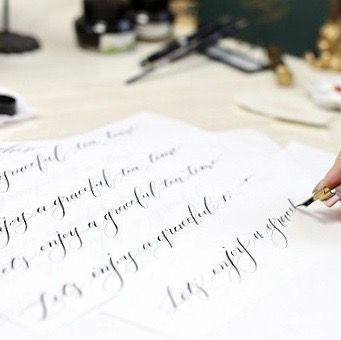 a graceful tea time
njoy a graceful tea time
ets enjoy a graceful tea time
Lets enjoy a graceful
Lets enjoy a grac